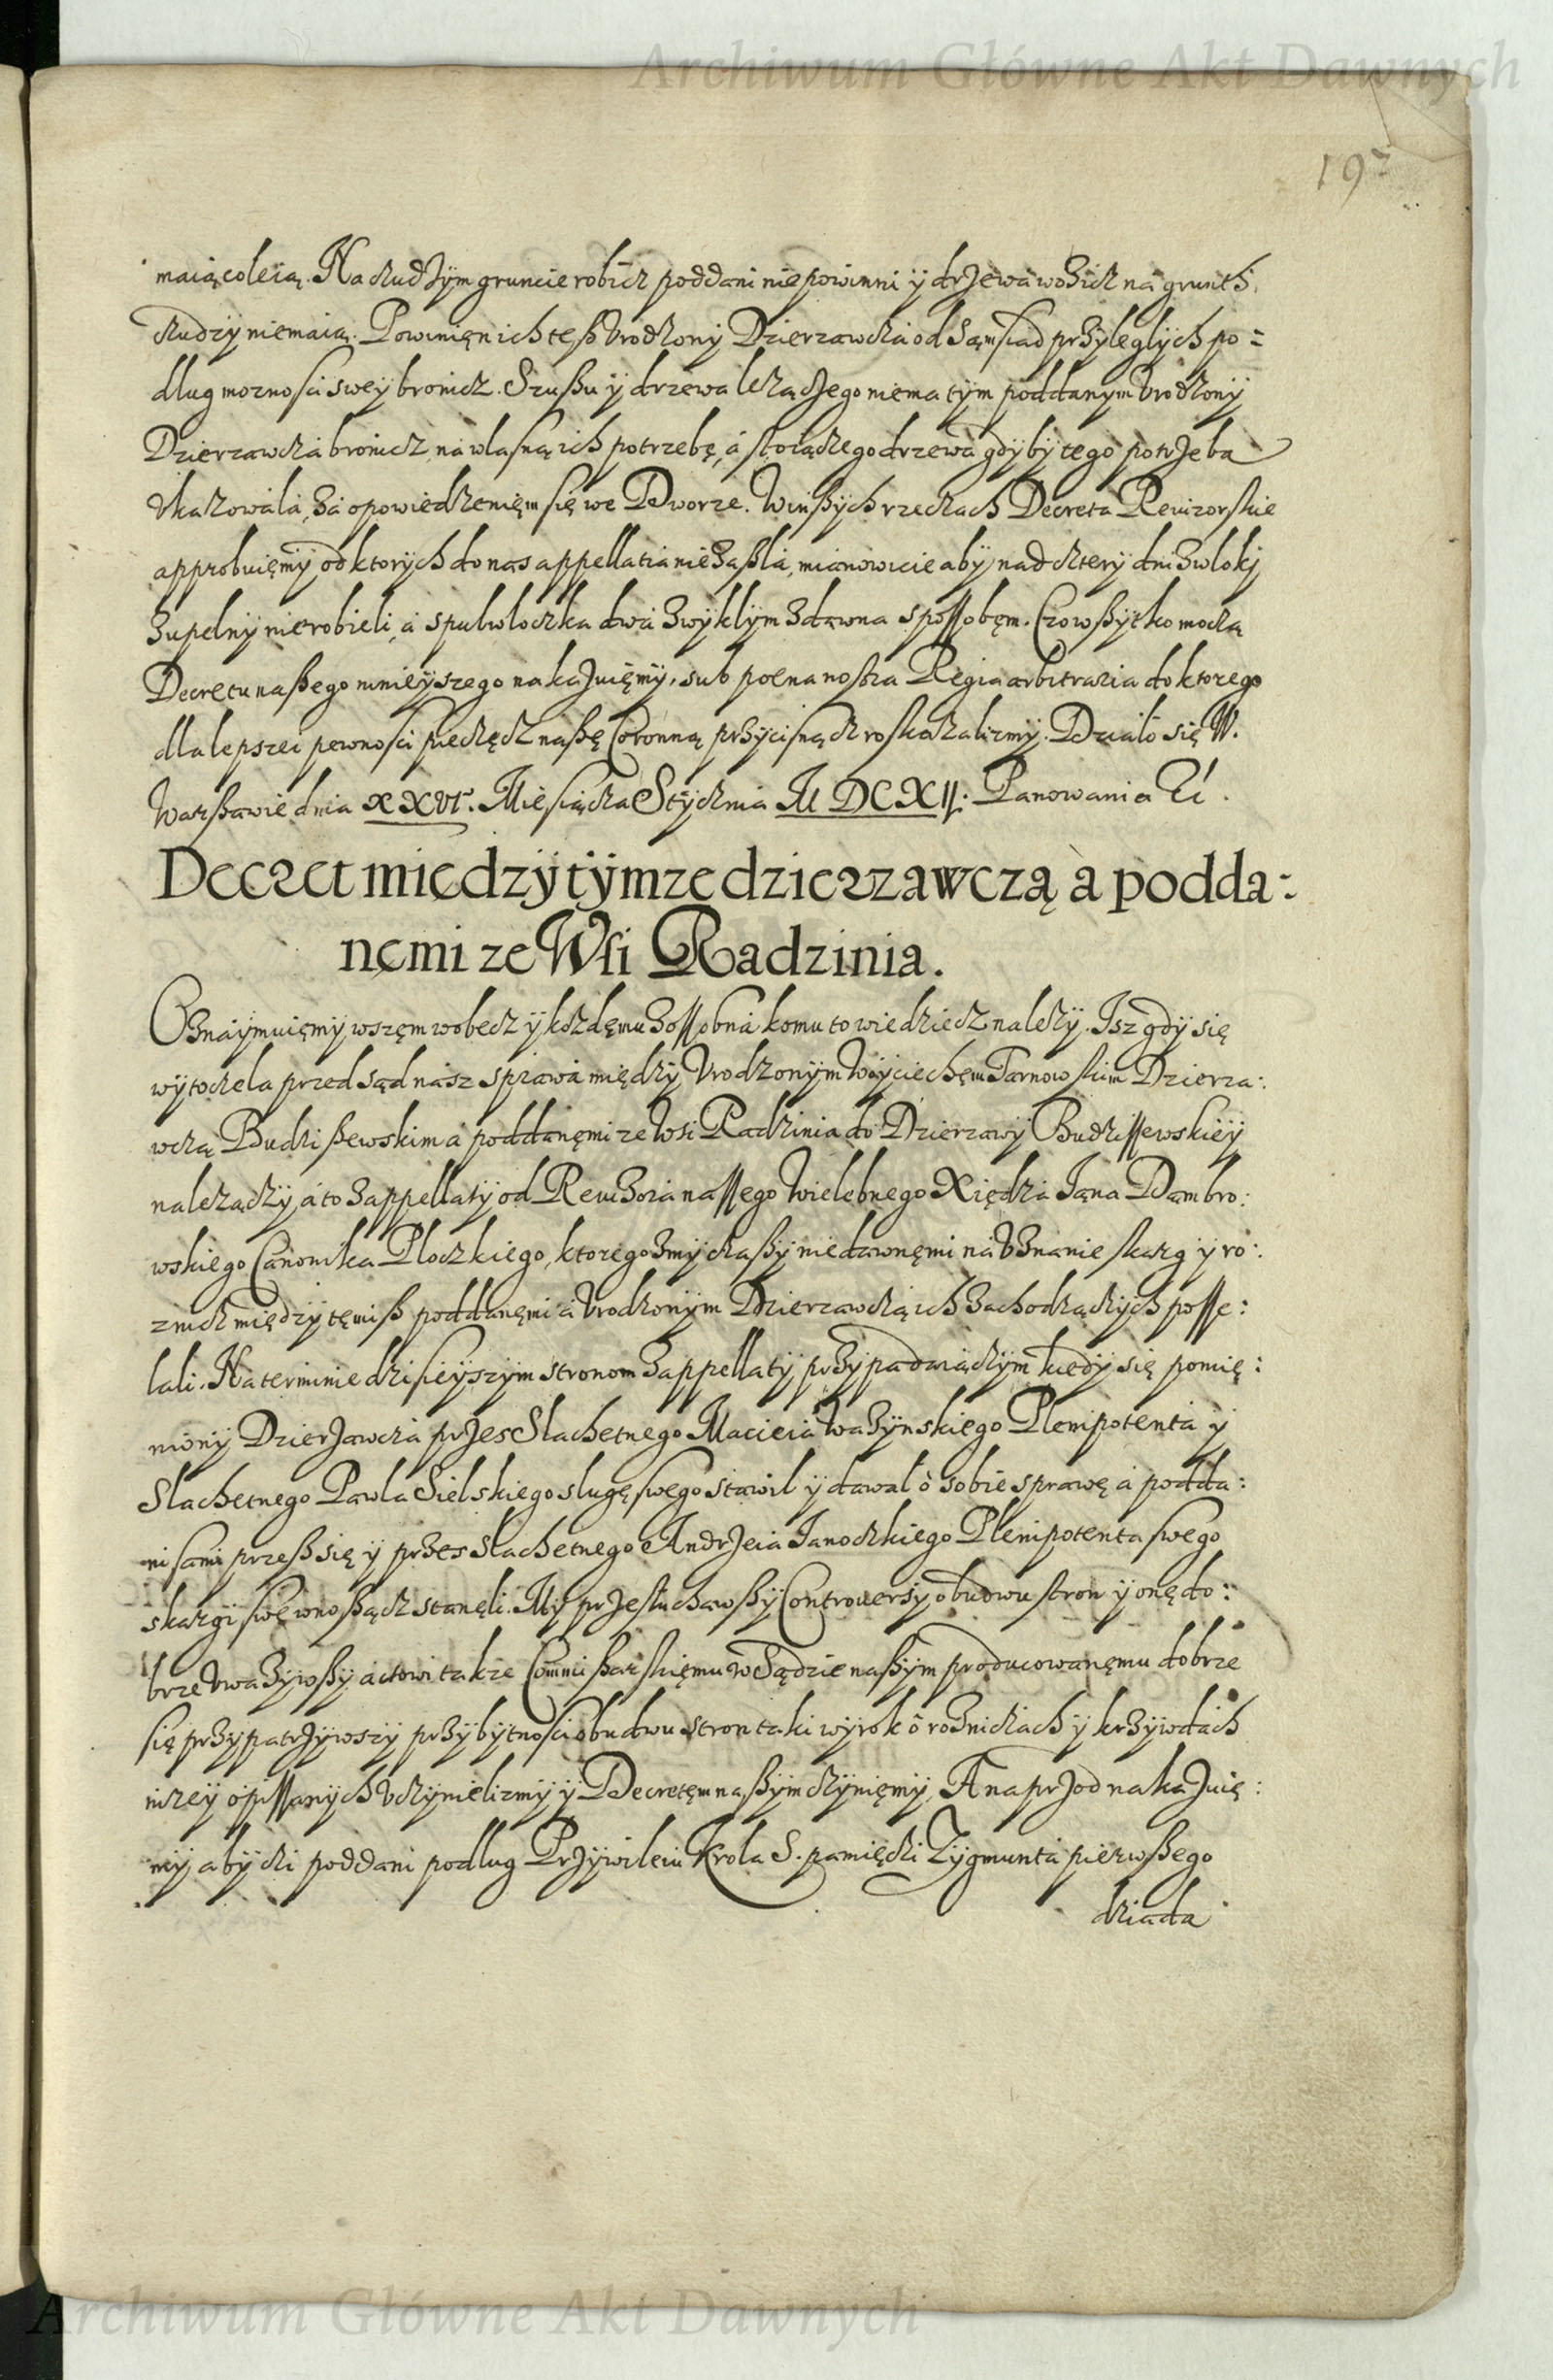 Archiwum Główne Akt Dawnych
197
maią coleią. Na cudzym gruncie robicz poddani nie powinni y drzewa wozicz na grunth
cudzy nie maią. Powinię nich tesz Urodzony Dzierzawcza od Sąmsiad przyległych po=
dlug moznosci swey bronicz. Szuszu y drzewa leżączego niema tym poddanym Urodzony
Dzierzawcza bronicz, na wlasną ich potrzebę, a stoiączego drzewa gdyby tego potrzeba
Ukazowala, za opowiedzenięm się we Dworze. W inszych rzeczach Decreta Revizorskie
approbuięmy od ktorych do nas appellatia nie zaszla, mianowicie aby nad cztery dni z wloky
zupelny nie robieli, a s pulwloczka dwa zwyklym zdawna spossobęm. Czo wszytko moczą
Decretu naszego ninieyszego nakazuięmy, sub poena nostra Regia arbitraria do ktorego
dla lepszei pewnosci pieczęcz naszę Coronną przycisnącz roskazalizmy. Dzialo się W.
Warszawie dnia XXVI. Miesiącza Stycznia M DC XII. Panowania Ec.
Decret między tymze dzierzawczą a podda:
nęmi ze Wsi Radzinia.
Oznaymuięmy wszęm wobecz y kozdęmu zossobna komu to wiedziecz nalezy. Isz gdy się
wytoczela przed sąd nasz sprawa między Urodzonym Woyciechęm Tarnowskim Dzierza:
wczą Budziszewskim a poddanęmi ze Wsi Radzinia do Dzierzawy Budzissewskiey
nalezączy, a to z appellaty od Revizora nassego Wielebnego Xiędza Jana Dąmbro:
wskiego Canonika Ploczkiego, ktorego zmy czaszy niedawnęmi na Uznanie skarg y ro:
znicz między tęmisz poddanęmi a Urodzonym Dzierzawczą ich zachodzączych posse:
lali. Na terminie dzisieyszym stronom z appellaty przypadaiączym kiedy się pomię:
niony Dzierzawcza przes Slachetnego Macieia Wazynskiego Plenipotenta y
Slachetnego Pawla Sielskiego slugę swego stawil y dawal o sobie sprawę a podda:
ni sami przesz się y przes Slachetnego Andrzeia Janoczkiego Plenipotenta swego
skargi swe wnosząz stanęli. My przesluchawszy Controversy obudwu stron y onę do:
brze Uwazywszy actowi takze Commiszarskięmu w Sądzie naszym producowanęmu dobrze
się przypatrzywszy przy bytnosci obudwu stron taki wyrok o roznicach y krzywdach
nizey opissanych Uczynielizmy y Decretęm naszym czynięmy. A naprzod nakazuię:
my aby czi poddani podlug Przywileiu Krola S. pamięczi Zygmunta pierwszego
dziada
Archiwum Główne Akt Dawnych